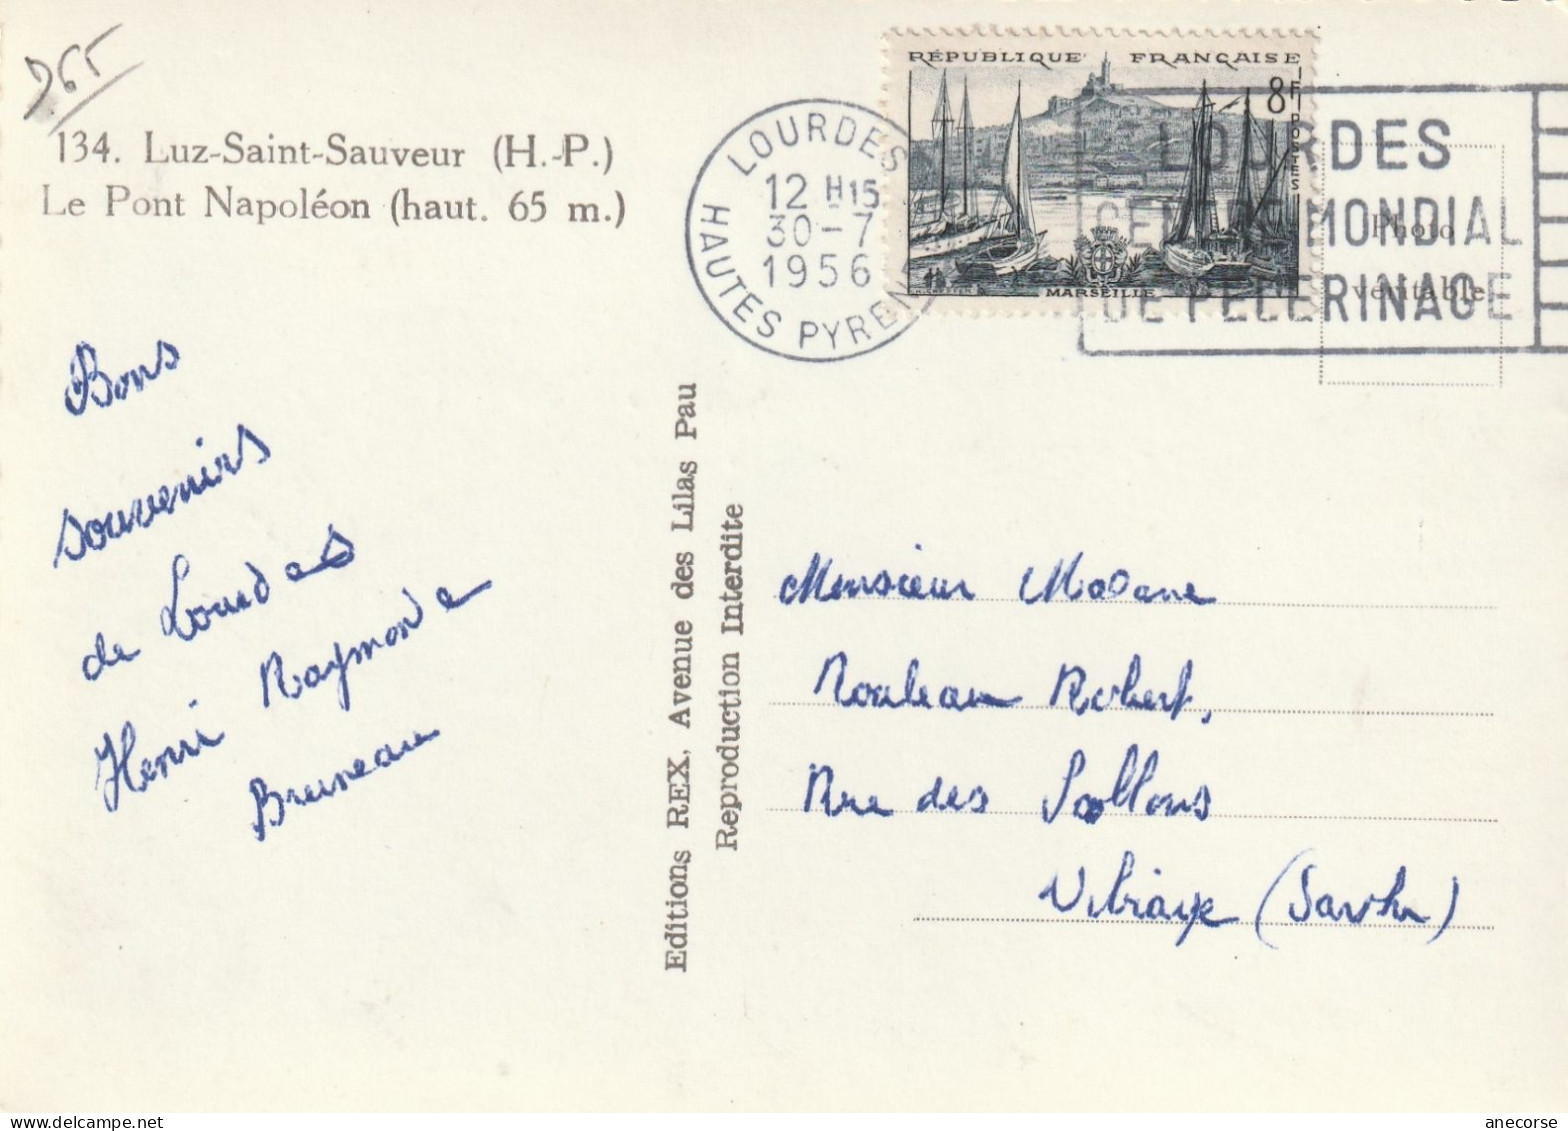 965
134. Luz-Saint-Sauveur (H.-P.)
Le Pont Napoléon (haut. 65 m.)
RÉPUBLIQUE FRANÇAISE
8F
POSTES
MARSEILLE
LOURDES
12 H15
30-7
1956
HAUTES PYREN
LOURDES
CENTRE MONDIAL
DE PELERINAGE
Photo
véritable
Bons
souvenirs
de Lourdes
Henri Raymonde
Bruneau
Editions REX, Avenue des Lilas Pau
Reproduction Interdite
Monsieur Madame
Rouleau Robert,
Rue des Sablons
Vibraye (Sarthe)
anecorse